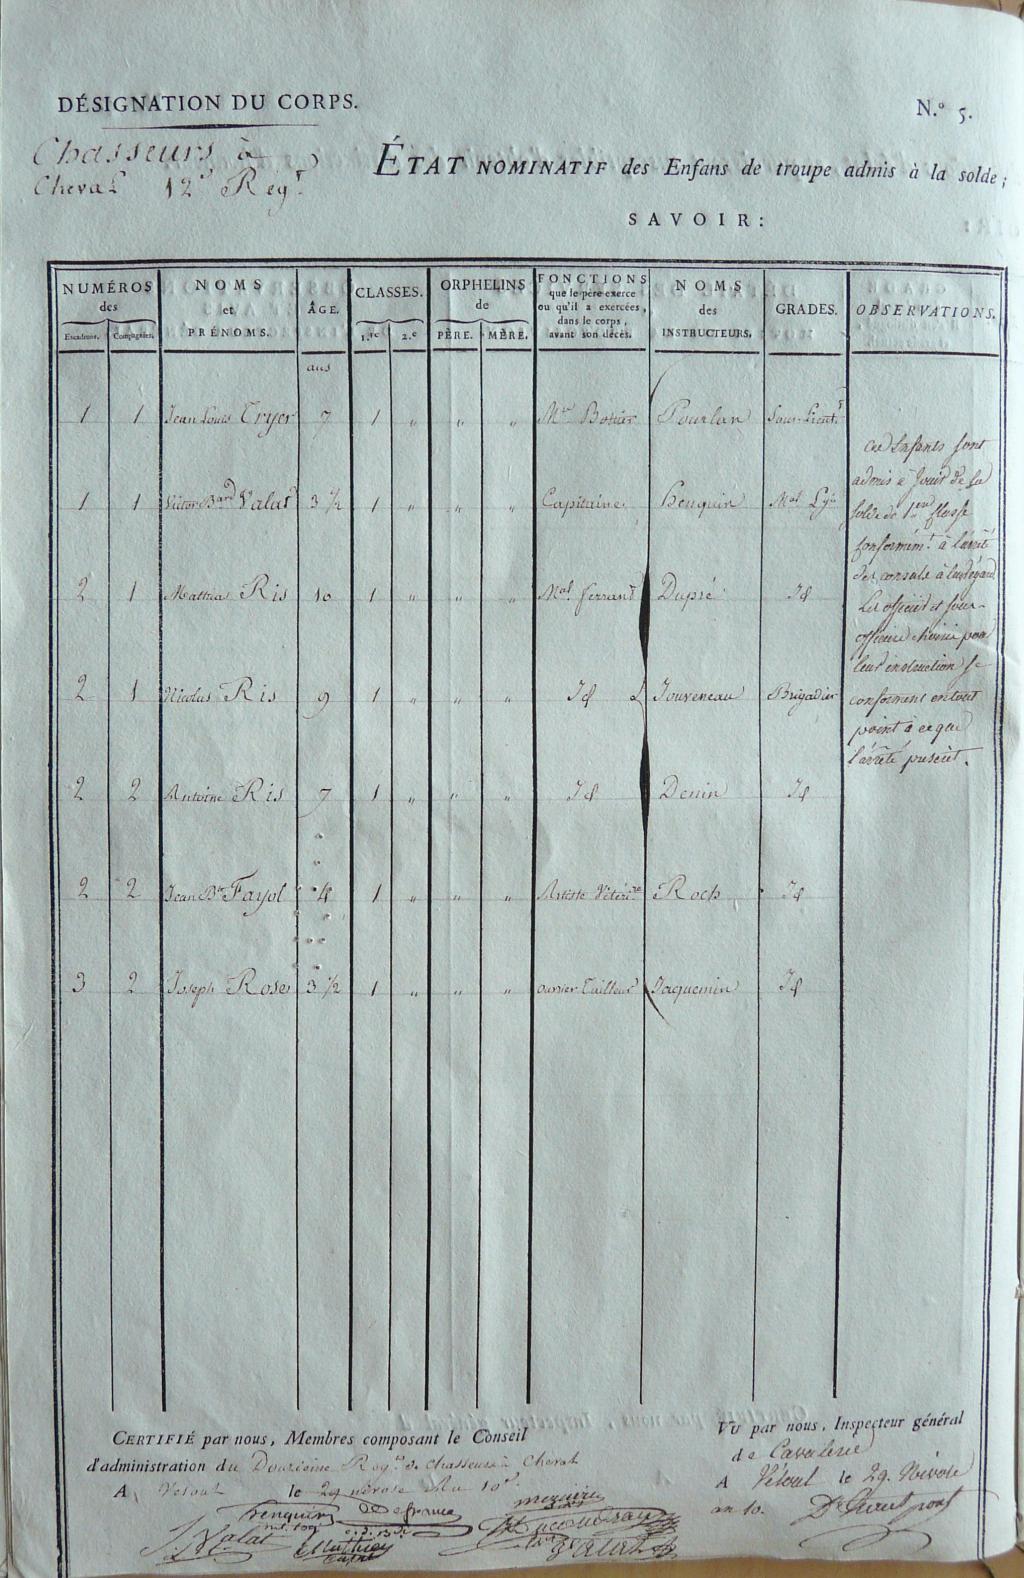 DÉSIGNATION DU CORPS.
N.° 5.
Chasseurs à
Cheval 12e Regt
ÉTAT NOMINATIF des Enfans de troupe admis à la solde;
SAVOIR:
NUMÉROS des
Escadrons. Compagnies.
NOMS et PRÉNOMS.
ÂGE.
CLASSES.
1.re 2.e
ORPHELINS de
PÈRE. MÈRE.
FONCTIONS
que le père exerce
ou qu'il a exercées,
dans le corps,
avant son décès.
NOMS des INSTRUCTEURS.
GRADES.
OBSERVATIONS.
ans
1 1 Jean Louis Tryer 7 1 " " " Me Bottier Pourlan Sous-Lieutt
1 1 Victor Bard Valat 3 ½ 1 " " " Capitaine Henquin Mal Lgis
2 1 Mathias Ris 10 1 " " " Mal ferrant Dupré Id
2 1 Nicolas Ris 9 1 " " " Id Jouveneau Brigadier
2 2 Antoine Ris 7 1 " " " Id Denin Id
2 2 Jean Bte Fayol 4 1 " " " Artiste Vétérre Roch Id
3 2 Joseph Roses 3 ½ 1 " " " ouvrier Tailleur Jaquemin Id
Ces Enfants sont
admis à Jouir de la
solde de 1ere Classe
conformémt à l'arrêté
des consuls à leur égard
Les officiers et sous-
officiers choisis pour
leur instruction se
conforment en tout
point à ce que
l'arrêté prescrit.
CERTIFIÉ par nous, Membres composant le Conseil
d'administration du Douzième Regt de chasseurs à Cheval
A Vesoul le 29 nivose An 10e
henquin defrance
mal logis
J. Valat Mathey
Valat
VU par nous, Inspecteur général
de Cavalerie
A Vesoul le 29. Nivôse
an 10.